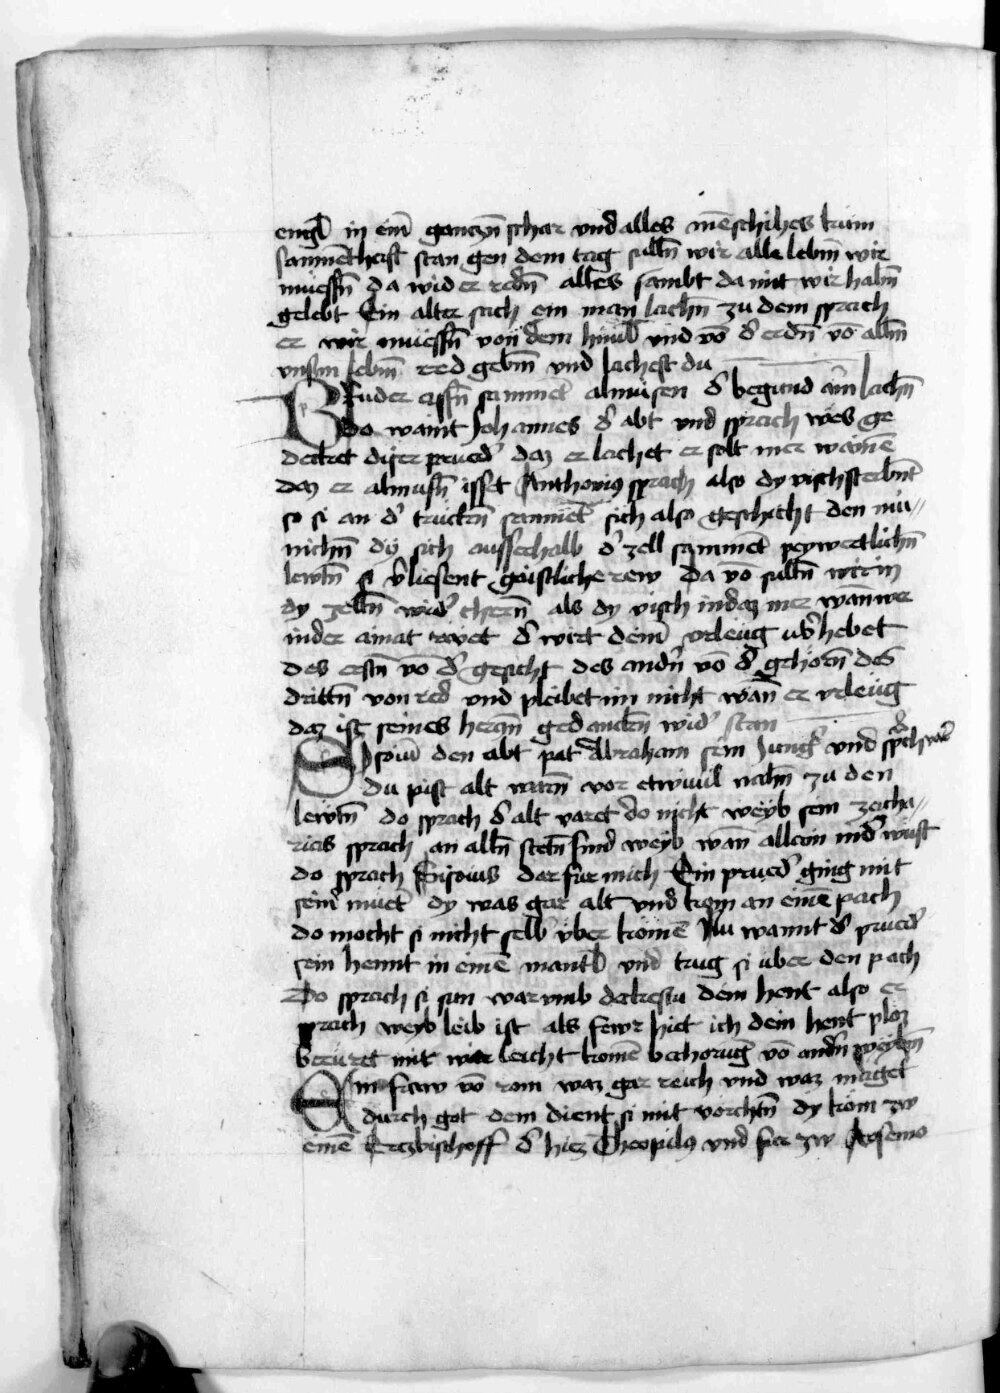 engl in eim̄ ganczn̄ schar vnd alles mēschliches kum
sammēthaft stan gen dem tag sulln̄ wir alle lebm̄ wir
müessn̄ da wider redn̄ alles sambt da mit wir habn̄
gelebt Ein alter sach ein man lachn̄ zu dem sprach
er wir müessn̄ von dem himl vnd vō d' erdn̄ vō allm̄
vnsm̄ lebm̄ red gebm̄ vnd lachest du
Bruder essn̄ sammet almusen d' begund ain lachn̄
do waint Johannes d' abt vnd sprach wes ge
dechet diser prued' daz er lachet er solt mer wainē
daz er almusn̄ isset Anthonius sprach also dy visch sterbnt
so si an d' truckn̄ sammēt sich also geschicht den mü-
nichn̄ dy sich ausserhalb d' zell sammēt pey werltlichn̄
lewtn̄ si v'liesent gaistliche rew da vō sulln̄ wir in
dy zelln̄ wid' chern̄ als dy visch in daz mer wann wer
in der ainat rwet d' wirt dreir vrleug vb'hebet
des erstn̄ vō d' gesicht des andn̄ vō d' gehorn̄ des
drittn̄ von red vnd pleibet im nicht wan̄ er vrleug
daz ist seines herczn̄ gedanckn̄ wid' stan
Sisoim den abt pat Abraham sein Jung' vnd sprach vater
du pist alt warn̄ vor etwiuil nahn̄ zu den
lewtn̄ do sprach d' alt varet do nicht weyb sein zacha-
rias sprach an alln̄ stetn̄ sind weyb wan̄ allain in d' wüst
do sprach Sisoius dar für mich Ein prued' ging mit
sein' muet' dy was gar alt vnd kom an einē pach
do mocht si nicht selb über komē Nu wannt d' prued'
sein hennt in einē mantl vnd trug si uber den pach
Do sprach si sun warumb dekcestu dein hent also er
sprach weyb leib ist als fewr hiet ich dein hent ploz
berüret mir wär leicht komē bechorug vō andn̄ weybn̄
Ain fraw vō rom waz gar reich vnd waz maget
durch got dem dient si mit vorchtn̄ dy kom zw
einē Erczbischoff d' hiez Theopilus vnd fuer zw Arsenio